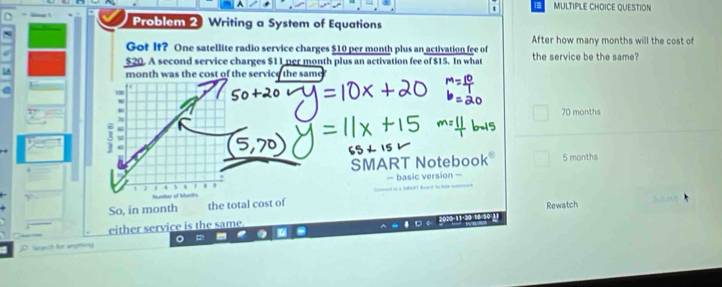 MULTIPLE CHOICE QUESTION
Problem 2 Writing a System of Equations
After how many months will the cost of
the service be the same?
Got It? One satellite radio service charges $10 per month plus an activation fee of
$20. A second service charges $11 per month plus an activation fee of $15. In what
month was the cost of the service the same?
50+20 ✓ y=10x+20 m=10/1 b=20
(5,70) y=11x+15 m=11/1 b=15
55+15 ✓
70 months
5 months
SMART Notebook®
— basic version —
Total Cost ($)
1 2 3 4 5 6 7 8 9
Number of Months
So, in month the total cost of
either service is the same.
Rewatch
Submit
2020-11-30 16:50:11
Search for anything